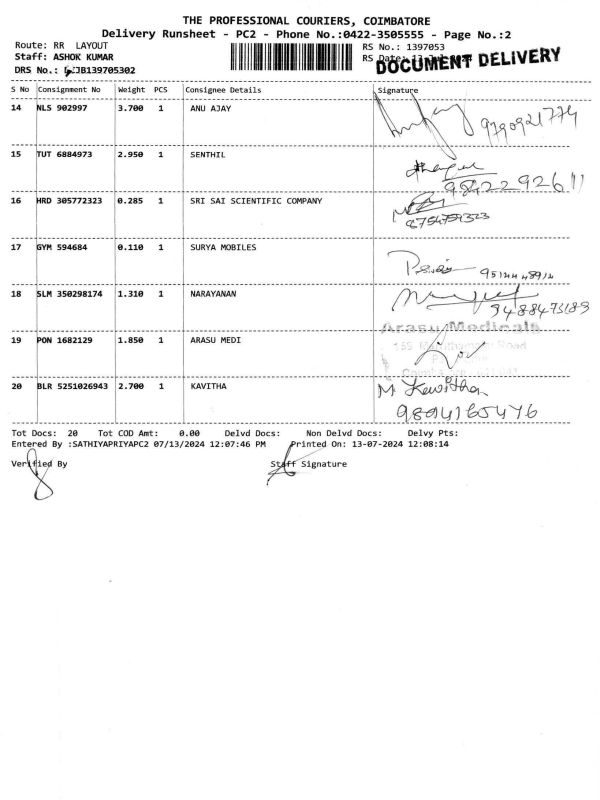 THE PROFESSIONAL COURIERS, COIMBATORE
Delivery Runsheet - PC2 - Phone No.:0422-3505555 - Page No.:2
Route: RR LAYOUT
RS No.: 1397053
Staff: ASHOK KUMAR
RS Date:
DOCUMENT DELIVERY
DRS No.: JB139705302
S No Consignment No Weight PCS Consignee Details Signature
14 NLS 902997 3.700 1 ANU AJAY
9790921774
15 TUT 6884973 2.950 1 SENTHIL
9842292611
16 HRD 305772323 0.285 1 SRI SAI SCIENTIFIC COMPANY
8754759323
17 GYM 594684 0.110 1 SURYA MOBILES
18 SLM 350298174 1.310 1 NARAYANAN
9488473189
Arasu Medicals
19 PON 1682129 1.850 1 ARASU MEDI
Road
20 BLR 5251026943 2.700 1 KAVITHA
M Kavitha
9894165476
Tot Docs: 20 Tot COD Amt: 0.00 Delvd Docs: Non Delvd Docs: Delvy Pts:
Entered By :SATHIYAPRIYAPC2 07/13/2024 12:07:46 PM Printed On: 13-07-2024 12:08:14
Verified By Staff Signature